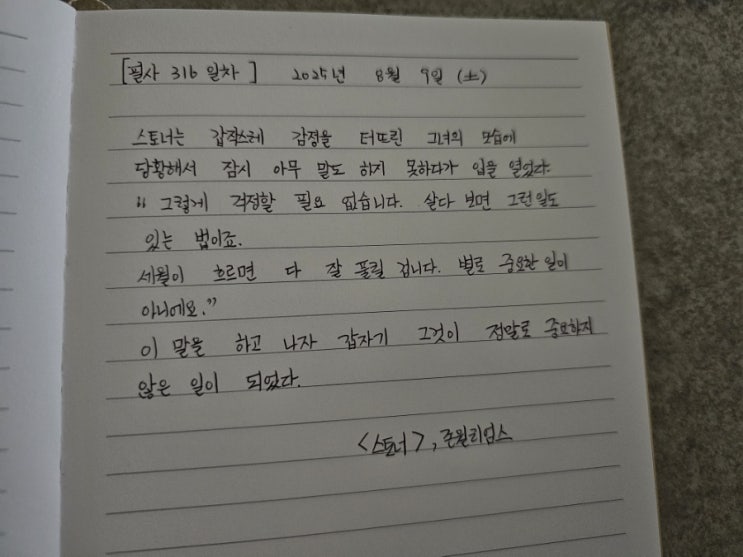 [필사 316 일차] 2025년 8월 9일 (土)
스토너는 갑작스레 감정을 터뜨린 그녀의 모습에
당황해서 잠시 아무 말도 하지 못하다가 입을 열었다.
“그렇게 걱정할 필요 없습니다. 살다 보면 그런일도
있는 법이죠.
세월이 흐르면 다 잘 풀릴 겁니다. 별로 중요한 일이
아니에요.”
이 말을 하고 나자 갑자기 그것이 정말로 중요하지
않은 일이 되었다.
<스토너>, 존윌리엄스